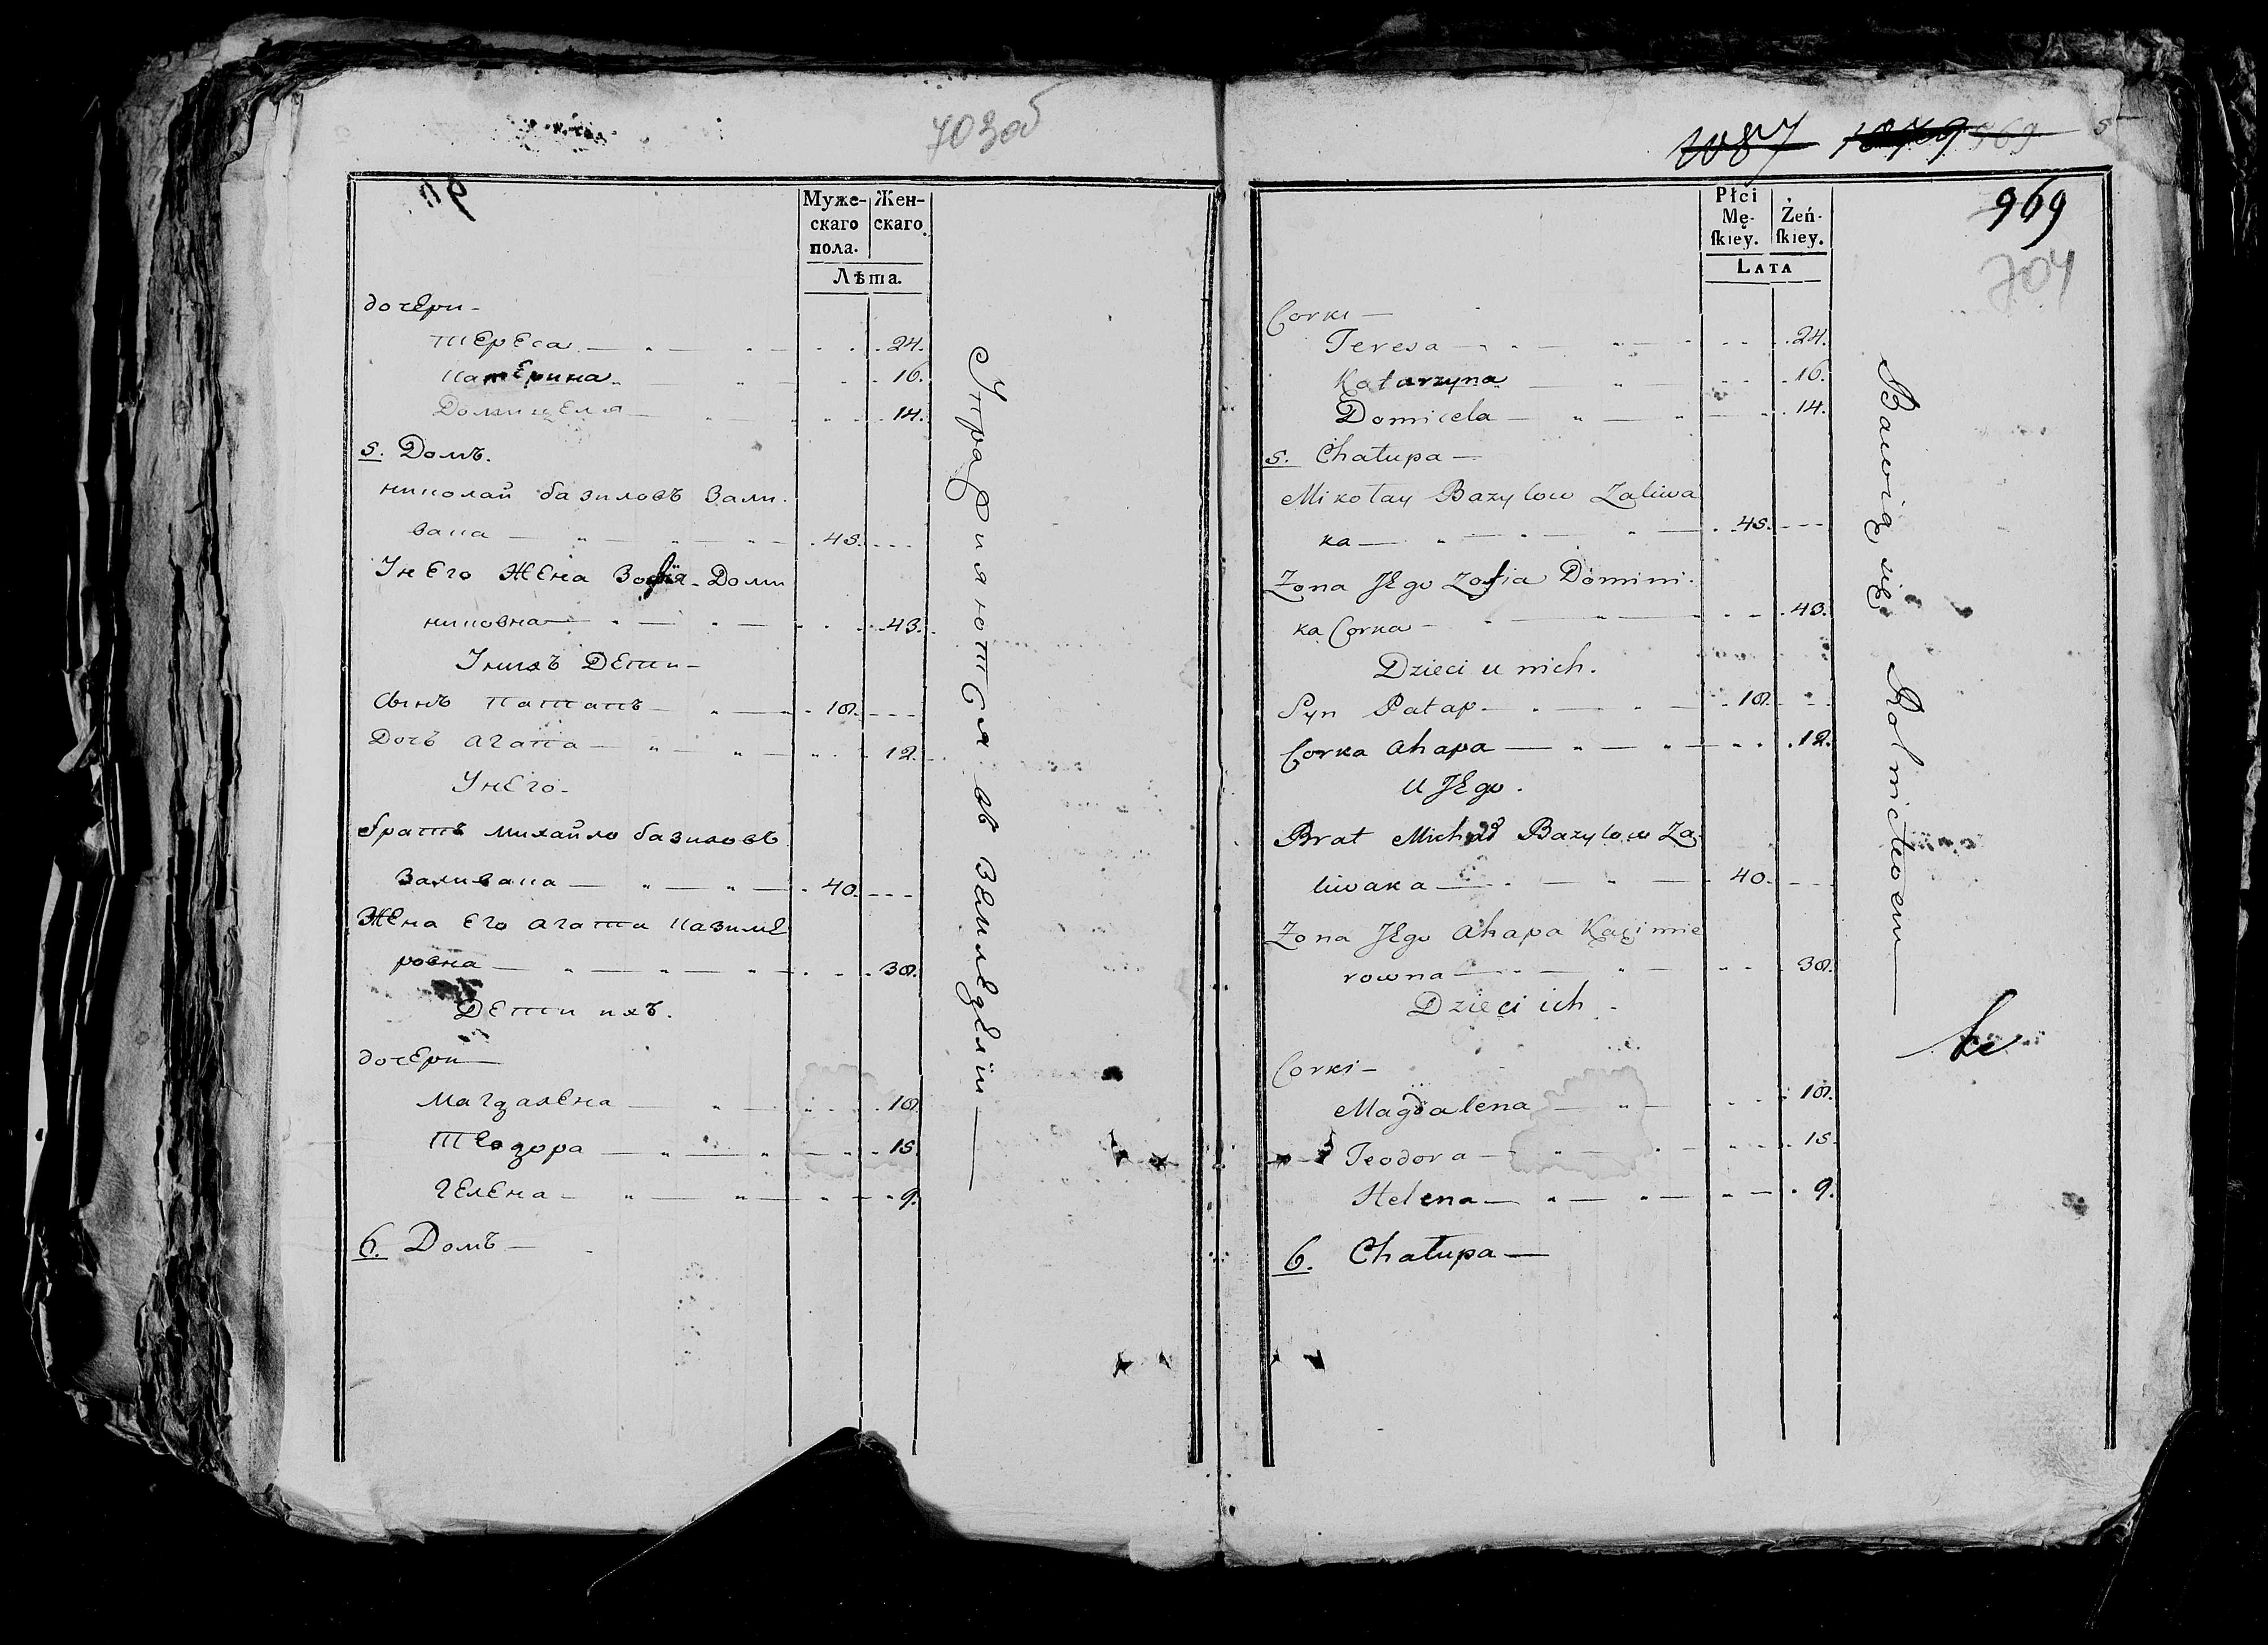 703об
Муже-
скаго
пола.
Жен-
скаго.
Лѣта.
дочери -
Тереса 24.
Катерина 16.
Домицеля 14.
5. Домъ.
николай базиловъ Зали-
вака 45.
У него жена Зофия Доми
никовна 43.
У нихъ Дети -
Сынъ Патапъ 18.
Дочъ агапа 12.
У него -
братъ михайло базиловъ
Заливака 40.
Жена его агата казиме
ровна 38.
Дети ихъ.
дочери
Магдалена 18.
Теодора 15.
Гелена 9.
6. Домъ
Упражняются въ земледелии
1087 1079 969 5
969
704
Płci
Mę-
ſkiey.
Żeń-
ſkiey.
LATA
Corki
Teresa 24.
Katarzyna 16.
Domicela 14.
5. Chałupa
Mikołay Bazylow Zaliwa
ka 45.
Zona Jego Zofia Domini-
ka Corka 43.
Dzieci u nich.
Syn Patap 18.
Corka Ahapa 12.
U Jego.
Brat Michał Bazylow Za-
liwaka 40.
Zona Jego Ahapa Kazimie
rowna 38.
Dzieci ich
Corki
Magdalena 18.
Teodora 15.
Helena 9.
6. Chałupa
Bawią się Rolnictwem